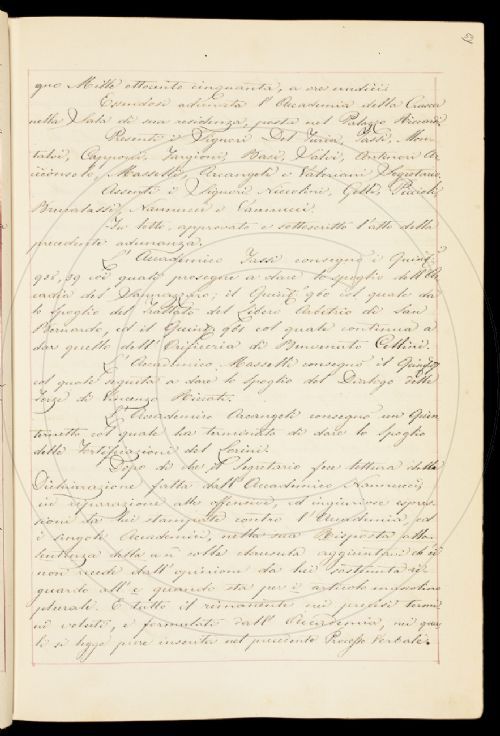 gno Mille ottocento cinquanta, a ore undici.
Essendosi adunata l'Accademia della Crusca
nella Sala di sua residenza, posta nel Palazzo Riccardi
Presenti i Signori Del Furia, Tassi, Mon-
talvi, Capponi, Targioni, Basi, Salvi, Antinori Ar-
ciconsolo, Massetti, Arcangeli e Valeriani Segretario.
Assenti i Signori Niccolini, Gelli, Puccioni
Brucalassi, Nannucci e Vannucci.
Fu letto, approvato e sottoscritto l'atto della
precedente adunanza.
L'Accademico Tassi consegnò i Quint.i
958, 59 coi quali prosegue a dare lo spoglio dell'Ar-
cadia del Sannazzaro; il Quint.o 960 col quale dà
lo spoglio del Trattato del Libero Arbitrio di San
Bernardo, ed il Quint.o 961 col quale continua a
dar quello dell'Orificeria di Benvenuto Cellini.
L'Accademico Massetti consegnò il
col quale seguita a dare lo spoglio del Dialogo delle
forze di Vincenzo Riccati.
L'Accademico Arcangeli consegnò un Quin-
ternetto col quale ha terminato di dare lo spoglio
delle Fortificazioni del Lorini.
Dopo di che il Segretario fece lettura della
Dichiarazione fatta dall'Accademico Nannucci,
in riparazione alle offensive, ed ingiuriose espres-
sioni da lui stampate contro l'Accademia, ed
i singoli Accademici, nella sua Risposta alla
sentenza della colla clausula aggiunta: ch'ei
non recede dall'opinione da lui sostenuta ri-
guardo all'e quando sta per i articolo mascolino
plurale. E tutto il rimanente nei precisi termi-
ni voluti, e formulati dall'Accademia, nei qua-
li si legge pure inserita nel presente Processo Verbale.